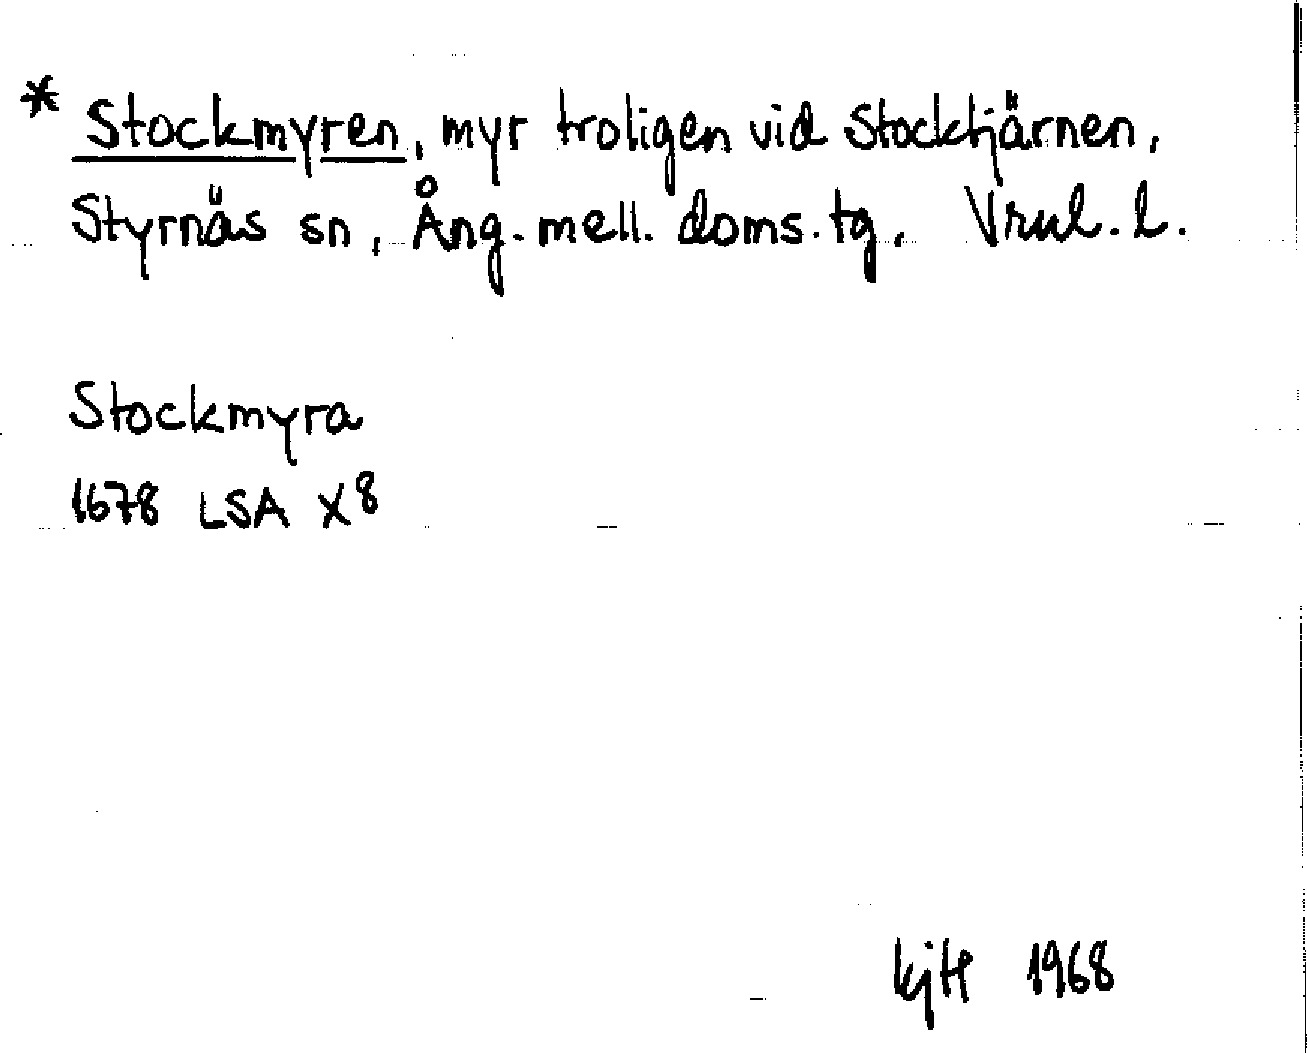 * Stockmyren, myr troligen vid Stocktjärnen,
Styrnäs sn, Ång. mell. doms. tg, Vrnl. l.
Stockmyra
1678 LSA X8
1968